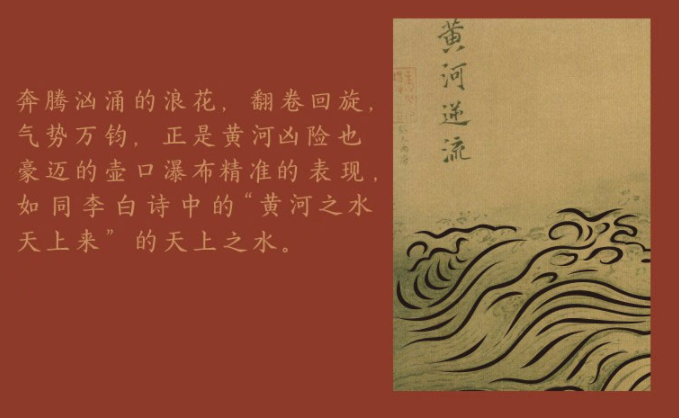 奔腾汹涌的浪花，翻卷回旋，
气势万钧，正是黄河凶险也
豪迈的壶口瀑布精准的表现，
如同李白诗中的“黄河之水
天上来”的天上之水。
黄河逆流